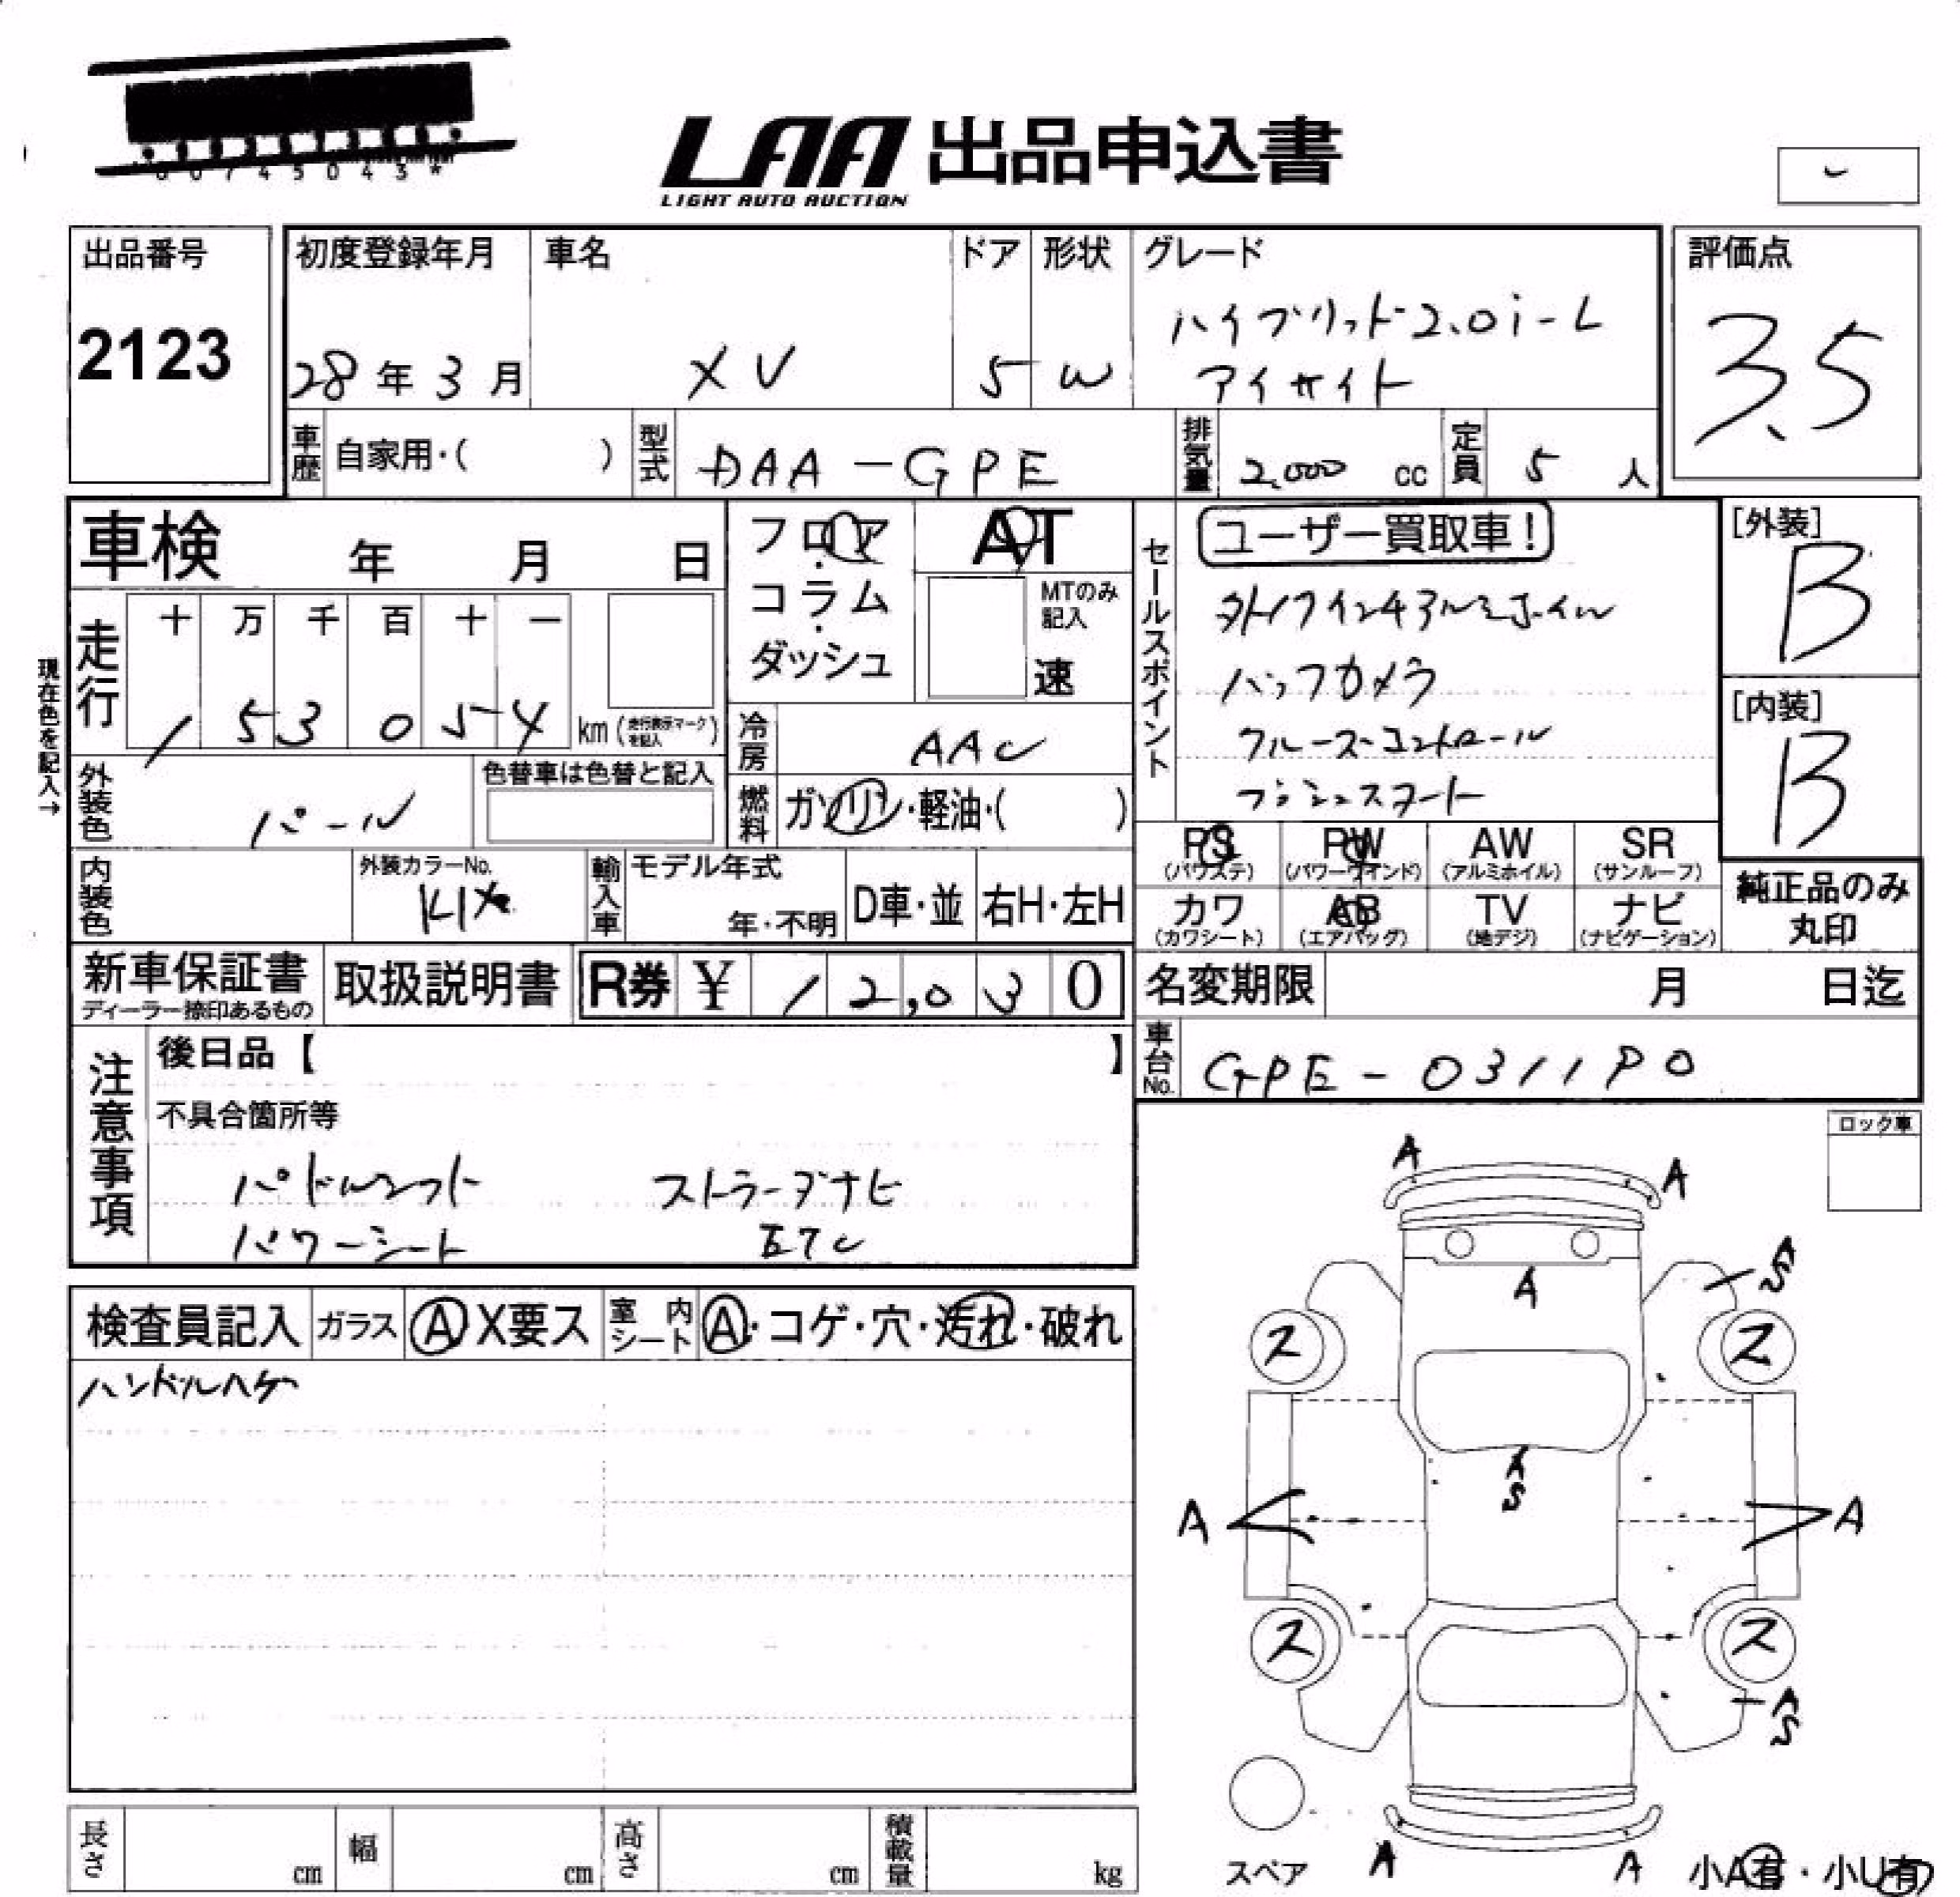 00745043*
LAA 出品申込書
LIGHT AUTO AUCTION
出品番号
2123
初度登録年月
28年3月
車名
XV
ドア
5
形状
W
グレード
ハイブリッド2.0i-L
アイサイト
評価点
3.5
車歴 自家用・( )
型式 DAA-GPE
排気量 2,000 cc
定員 5 人
車検 年 月 日
フロア・
コラム・
ダッシュ
AT
MTのみ
記入
速
セールスポイント
ユーザー買取車!
バックカメラ
クルーズコントロール
プッシュスタート
[外装]
B
[内装]
B
現在色を記入→
走行
十 万 千 百 十 一
1 5 3 0 5 4 km(走行表示マークを記入)
冷房 AAC
外装色 パール
色替車は色替と記入
燃料 ガソリン・軽油・( )
内装色
外装カラーNo.
K1X
輸入車
モデル年式
年・不明
D車・並
右H・左H
PS
(パワステ)
PW
(パワーウインド)
AW
(アルミホイル)
SR
(サンルーフ)
カワ
(カワシート)
AB
(エアバッグ)
TV
(地デジ)
ナビ
(ナビゲーション)
純正品のみ
丸印
新車保証書
ディーラー捺印あるもの
取扱説明書
R券 ¥ 12,030
名変期限 月 日迄
車台No. GPE-031190
注意事項
後日品【 】
不具合箇所等
パドルシフト ストラーダナビ
パワーシート ETC
ロック車
検査員記入 ガラス A X要ス 室内シート A・コゲ・穴・汚れ・破れ
ハンドルハゲ
A
A
A
A
S
ス
ス
A
S
A
A
ス
ス
A
S
スペア
A
A
小A有・小U有
長さ cm
幅 cm
高さ cm
積載量 kg